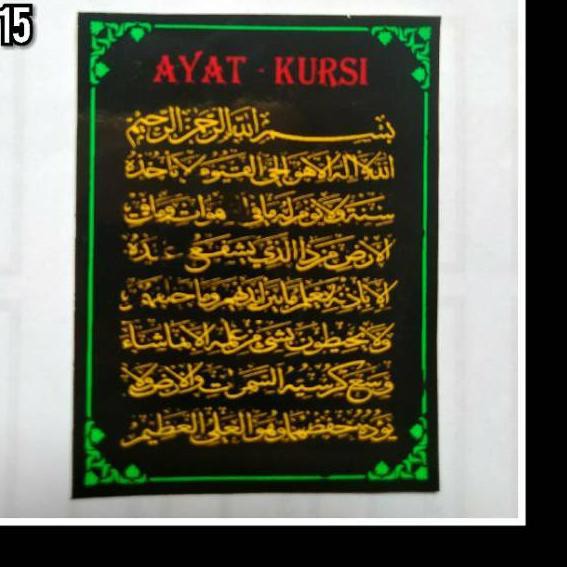 15
AYAT - KURSI
بسم الله الرحمن الرحيم
الله لا اله الا هو الحي القيوم لا تأخذه
سنة ولا نوم له ما في
الارض من ذا الذي يشفع عنده
الا باذنه يعلم ما بين ايديهم وما خلفهم
ولا يحيطون بشيء من علمه الا بما شاء
وسع كرسيه السموت والارض ولا
يؤده حفظهما وهو العلي العظيم